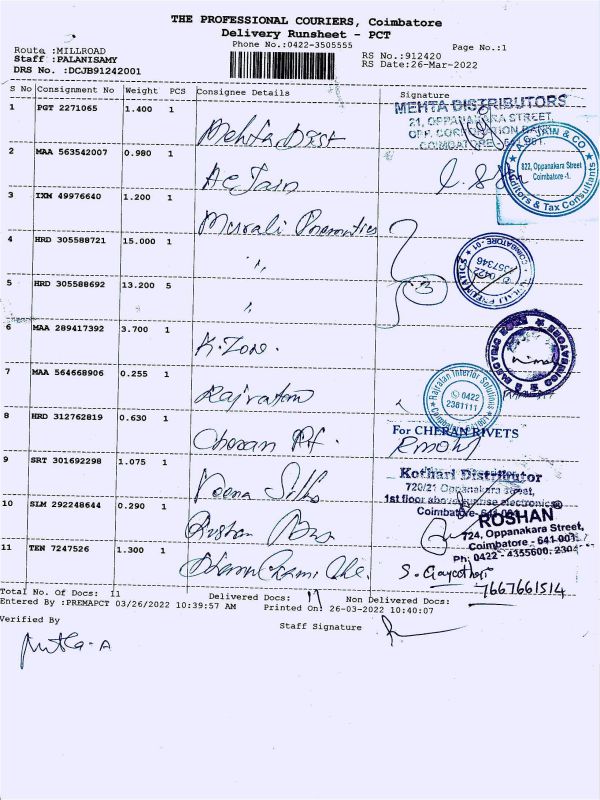 THE PROFESSIONAL COURIERS, Coimbatore
Delivery Runsheet - PCT
Phone No.:0422-3505555
Page No.:1
Route :MILLROAD
Staff :PALANISAMY
DRS No. :DCJB91242001
RS No.:912420
RS Date:26-Mar-2022
S No Consignment No Weight PCS Consignee Details Signature
1 PGT 2271065 1.400 1 Mehta Dist
MEHTA DISTRIBUTORS
21, OPPANAKARA STREET,
OPP. CORPORATION BANK
COIMBATORE - 641 001.
2 MAA 563542007 0.980 1 AC Jain
& CO
822, Oppanakara Street
Coimbatore -1.
Auditors & Tax Consultants
3 IXM 49976640 1.200 1 Murali Pneumatics
4 HRD 305588721 15.000 1 "
COIMBATORE - 01
5 HRD 305588692 13.200 5 "
3
6 MAA 289417392 3.700 1 K. Zone.
7 MAA 564668906 0.255 1 Rajratan
Rajratan Interior Solutions
0422
2381111
8 HRD 312762819 0.630 1 Cheran
For CHERAN RIVETS
9 SRT 301692298 1.075 1 Veena Silks
Kothari Distributor
720/21 Oppanakara Street,
1st floor above sunrise electronics
Coimbatore- 641 001
10 SLM 292248644 0.290 1 Bros
ROSHAN®
724, Oppanakara Street,
Coimbatore - 641-001.
Ph: 0422 - 4355600, 2304
11 TEN 7247526 1.300 1
S. Gayathri
7667661514
Total No. Of Docs: 11 Delivered Docs: 11 Non Delivered Docs:
Entered By :PREMAPCT 03/26/2022 10:39:57 AM Printed On: 26-03-2022 10:40:07
Verified By Staff Signature